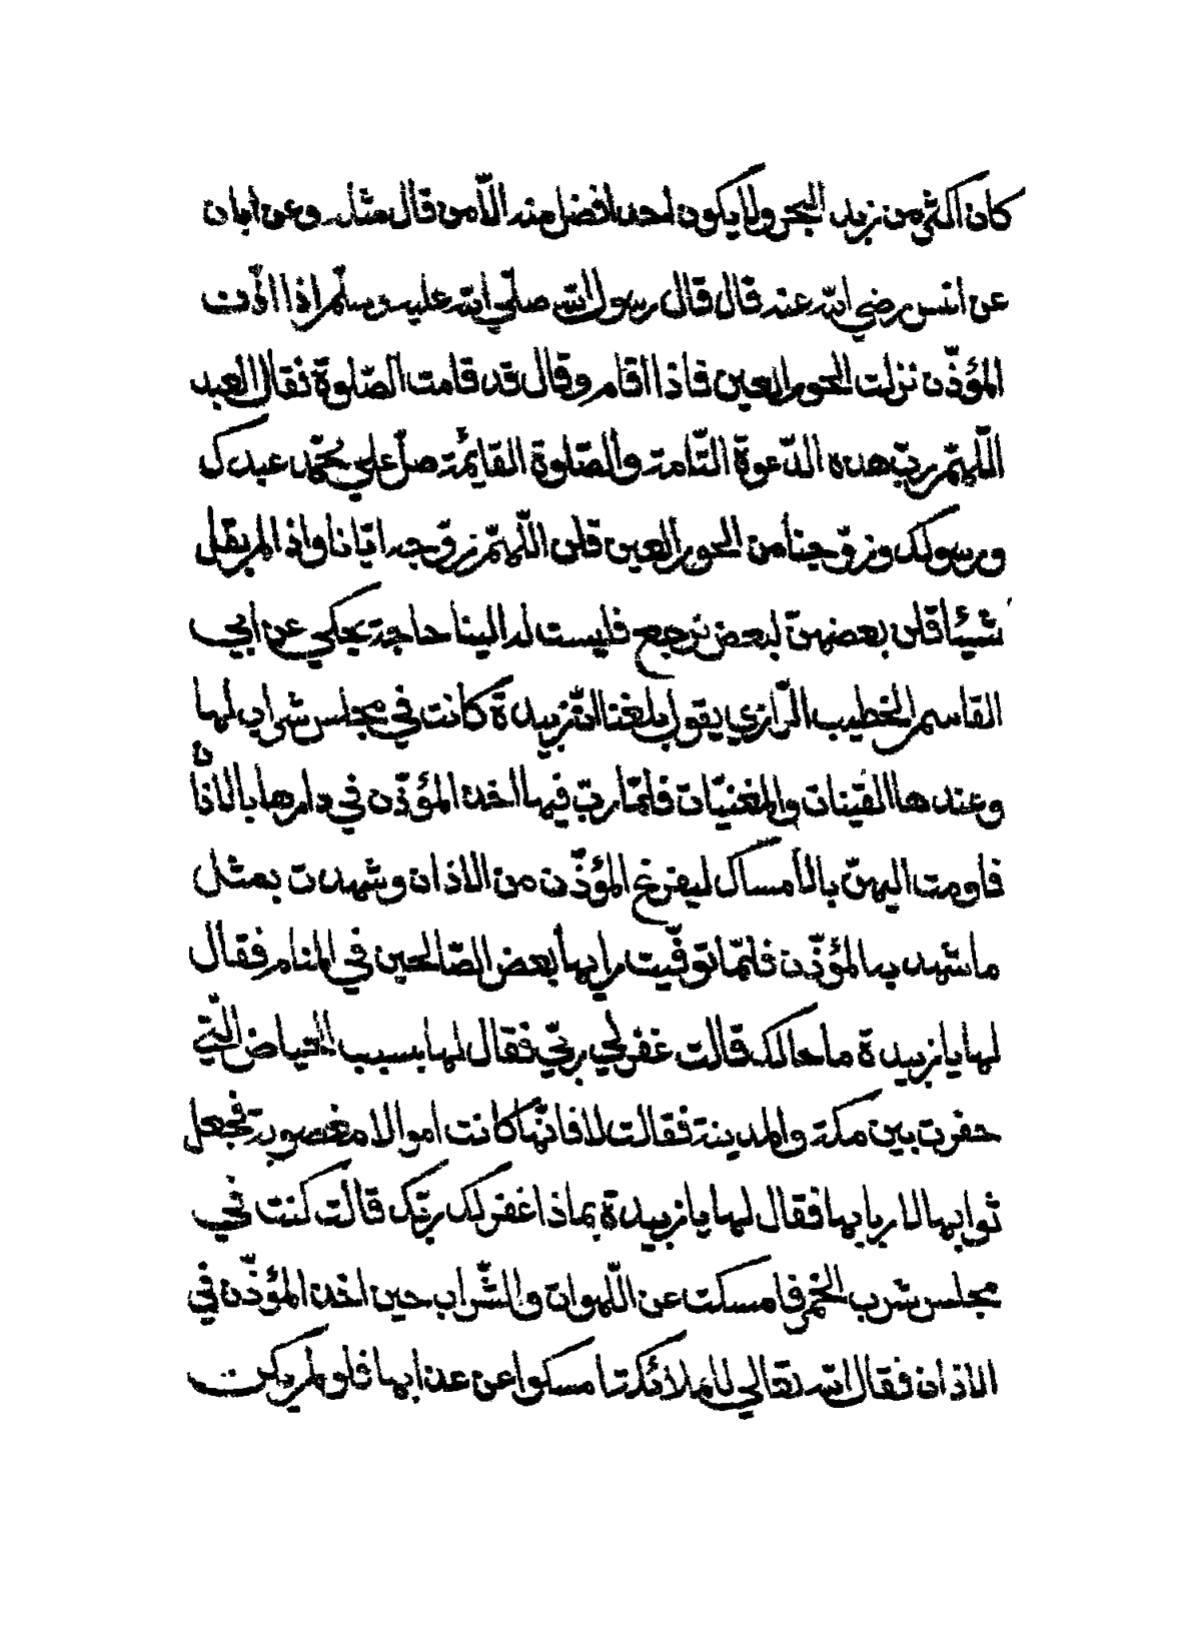 كان اكثر من زبد البحر ولا يكون احد افضل منه الّا من قال مثله وعن ابان
عن انس رضي الله عنه قال قال رسول الله صلّي الله عليه وسلّم اذا اذّن
المؤذّن نزلت الحور العين فاذا اقام وقال قد قامت الصّلوة فقال العبد
اللّهمّ ربّ هذه الدّعوة التّامة والصّلوة القائمة صلّ علي محمّد عبدك
ورسولك وزوّجنا من الحور العين قلن اللّهمّ زوّجه ايّانا واذا لم يقل
شيئا قلن بعضهنّ لبعض نرجع فليست له الينا حاجة يحكي عن ابي
القاسم الخطيب الرّازي يقول بلغنا انّ زبيدة كانت في مجلس شراب لها
وعندها القينات والمغنيّات فلمّا ربّ فيها اخذ المؤذّن في دارها بالاذان
فاومت اليهنّ بالأمساك ليفرغ المؤذّن من الاذان وشهدت بمثل
ما شهد به المؤذّن فلمّا توفّيت رايها بعض الصّالحين في المنام فقال
لها يا زبيدة ما حالك قالت غفر لي ربّي فقال لها بسبب الحياض الّتي
حفرت بين مكة والمدينة فقالت لا فانّها كانت اموالا مغصوبة فجعل
ثوابها لاربابها فقال لها يا زبيدة بماذا غفر لك ربّك قالت كنت في
مجلس شرب الخمر فامسكت عن اللّهوان والشّراب حين اخذ المؤذّن في
الاذان فقال الله تعالي لملائكته امسكوا عن عذابها فلو لم يكن